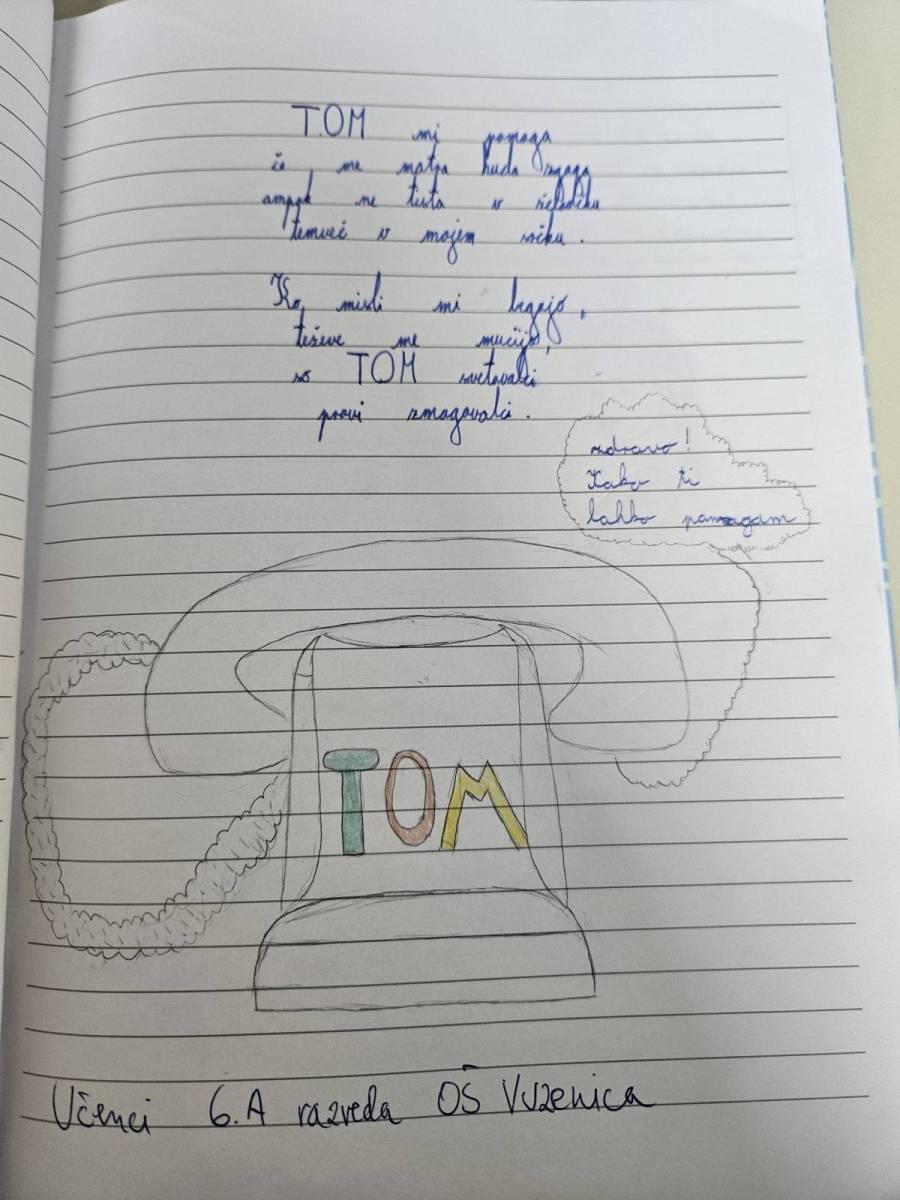 TOM mi pomaga
če me matra huda zgaga
ampak ne tista v želodčku
temveč v mojem srčku.
Ko misli mi begajo,
težave me mučijo,
so TOM svetovalci
pravi zmagovalci.
zdravo!
Kako ti
lahko pomagam
TOM
Učenci 6.A razreda OŠ Vuzenica